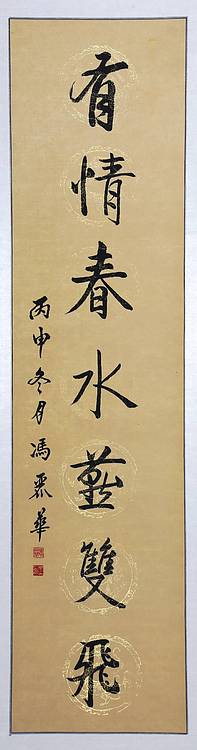 有情春水燕雙飛
丙申冬月馮麗華